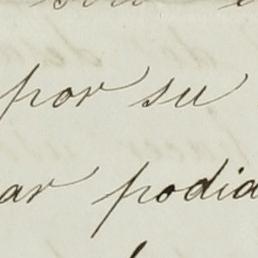 por su
ar podia